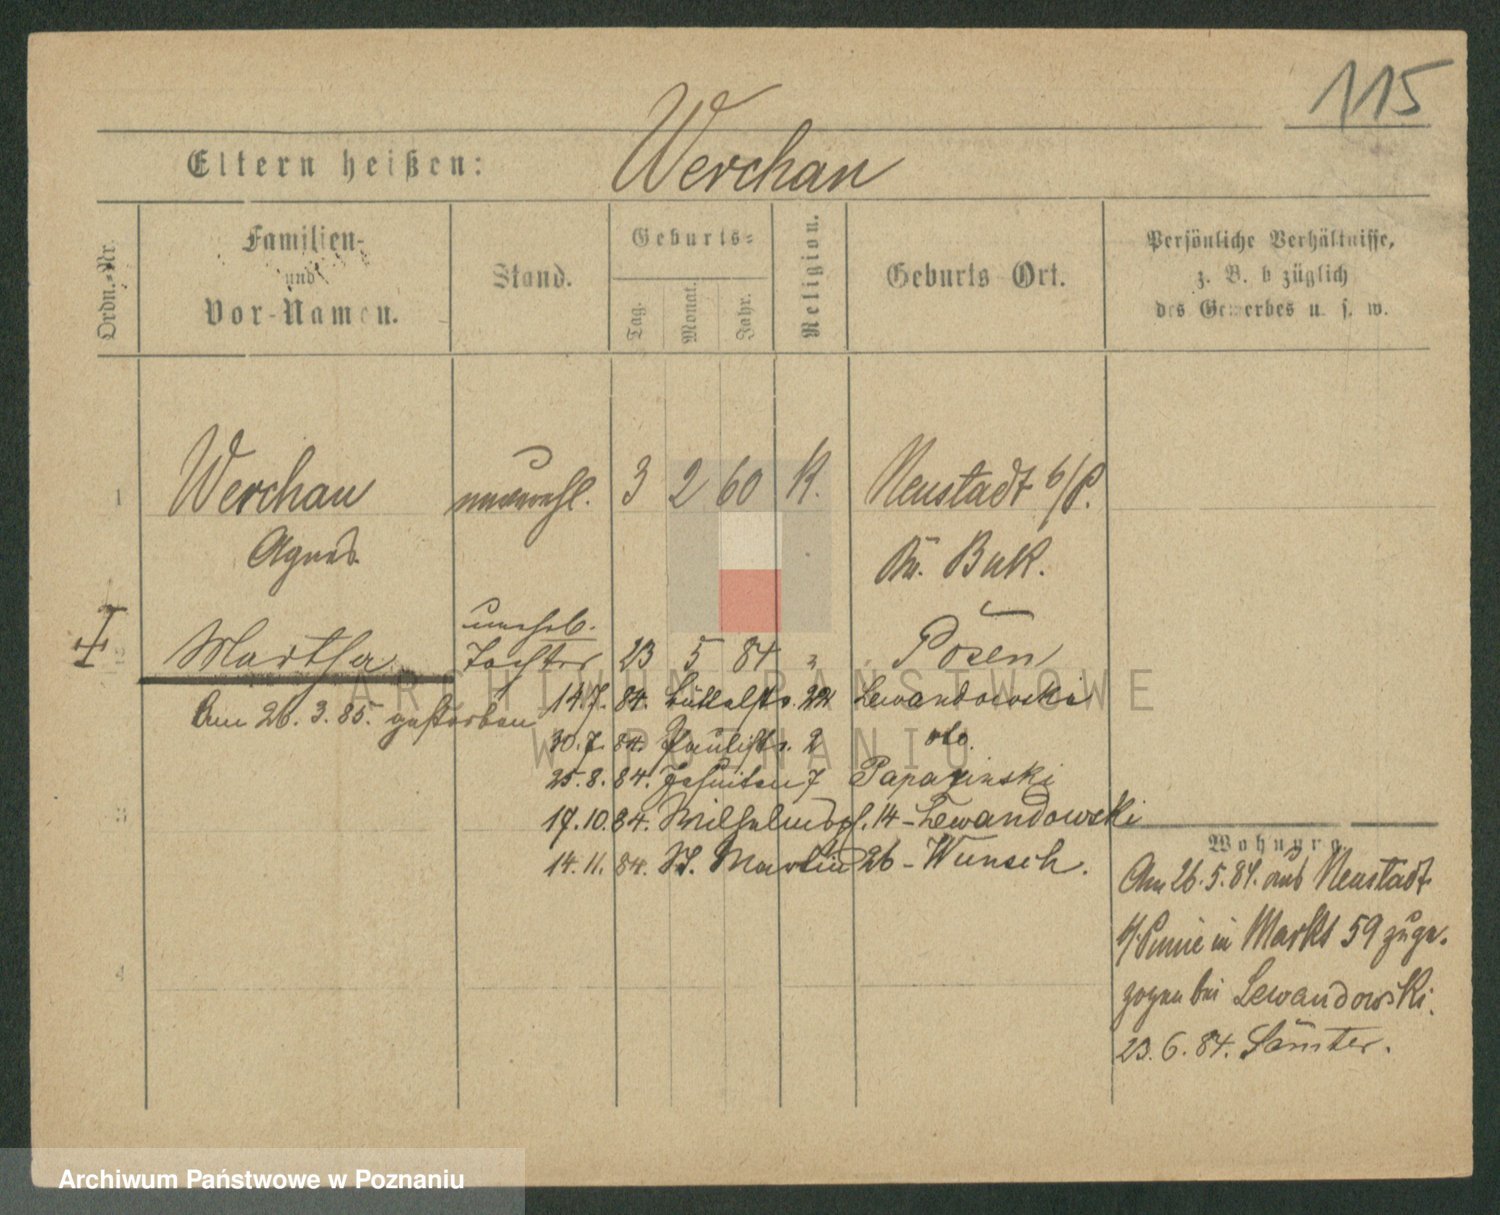 115
Eltern heißen: Werchan
Ordn.-Nr.
Familien-
und
Vor-Namen.
Stand.
Geburts-
Tag.
Monat.
Jahr.
Religion.
Geburts-Ort.
Persönliche Verhältnisse,
z. B. bezüglich
des Gewerbes u. s. w.
1 Werchan unverehl. 3 2 60 K. Neustadt b/P.
Agnes Kr. Buk.
unehel.
2 Martha Tochter 23 5 84 " Posen
Am 26. 3. 85. gestorben
14.7. 84. Büttelstr. 22 Lewandowski
30.7. 84. Paulistr. 2 dto.
25.8. 84. Jesuiten 7
17.10. 84. Wilhelmspl. 14 - Lewandowski
14.11. 84. St. Martin 26 - Wunsch.
3
4
Wohnung
Am 26.5.84. aus Neustadt
b/Pinne in Markt 59 zuge-
zogen bei Lewandowski.
23.6.84. Samter.
ARCHIWUM PAŃSTWOWE
W POZNANIU
Archiwum Państwowe w Poznaniu